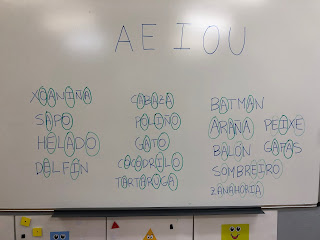 A E I O U
XOANIÑA
SAPO
HELADO
DELFÍN
CABAZA
POLIÑO
GATO
COCODRILO
TARTARUGA
BATMAN
ARAÑA PEIXE
BALÓN GAFAS
SOMBREIRO
ZANAHORIA